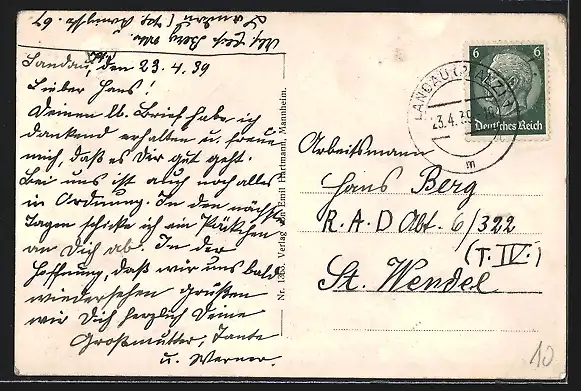 Landau, den 23.4.39
Lieber Hans!
Deinen lb. Brief habe ich
dankend erhalten u. freue
mich, daß es Dir gut geht.
Bei uns ist auch noch alles
in Ordnung. In den nächsten
Tagen schicke ich ein Päckchen
an Dich ab. In der
Hoffnung, daß wir uns bald
wiedersehen grüßen
wir Dich herzlich Deine
Großmutter, Tante
u. Werner.
Nr. 1363. Verlag von Emil Hartmann, Mannheim.
6 6
Deutsches Reich
LANDAU (PFALZ) 1
23.4.39
m
Arbeitsmann
Hans Berg
R.A.D Abt. 6/322
(T. IV.)
St. Wendel
10